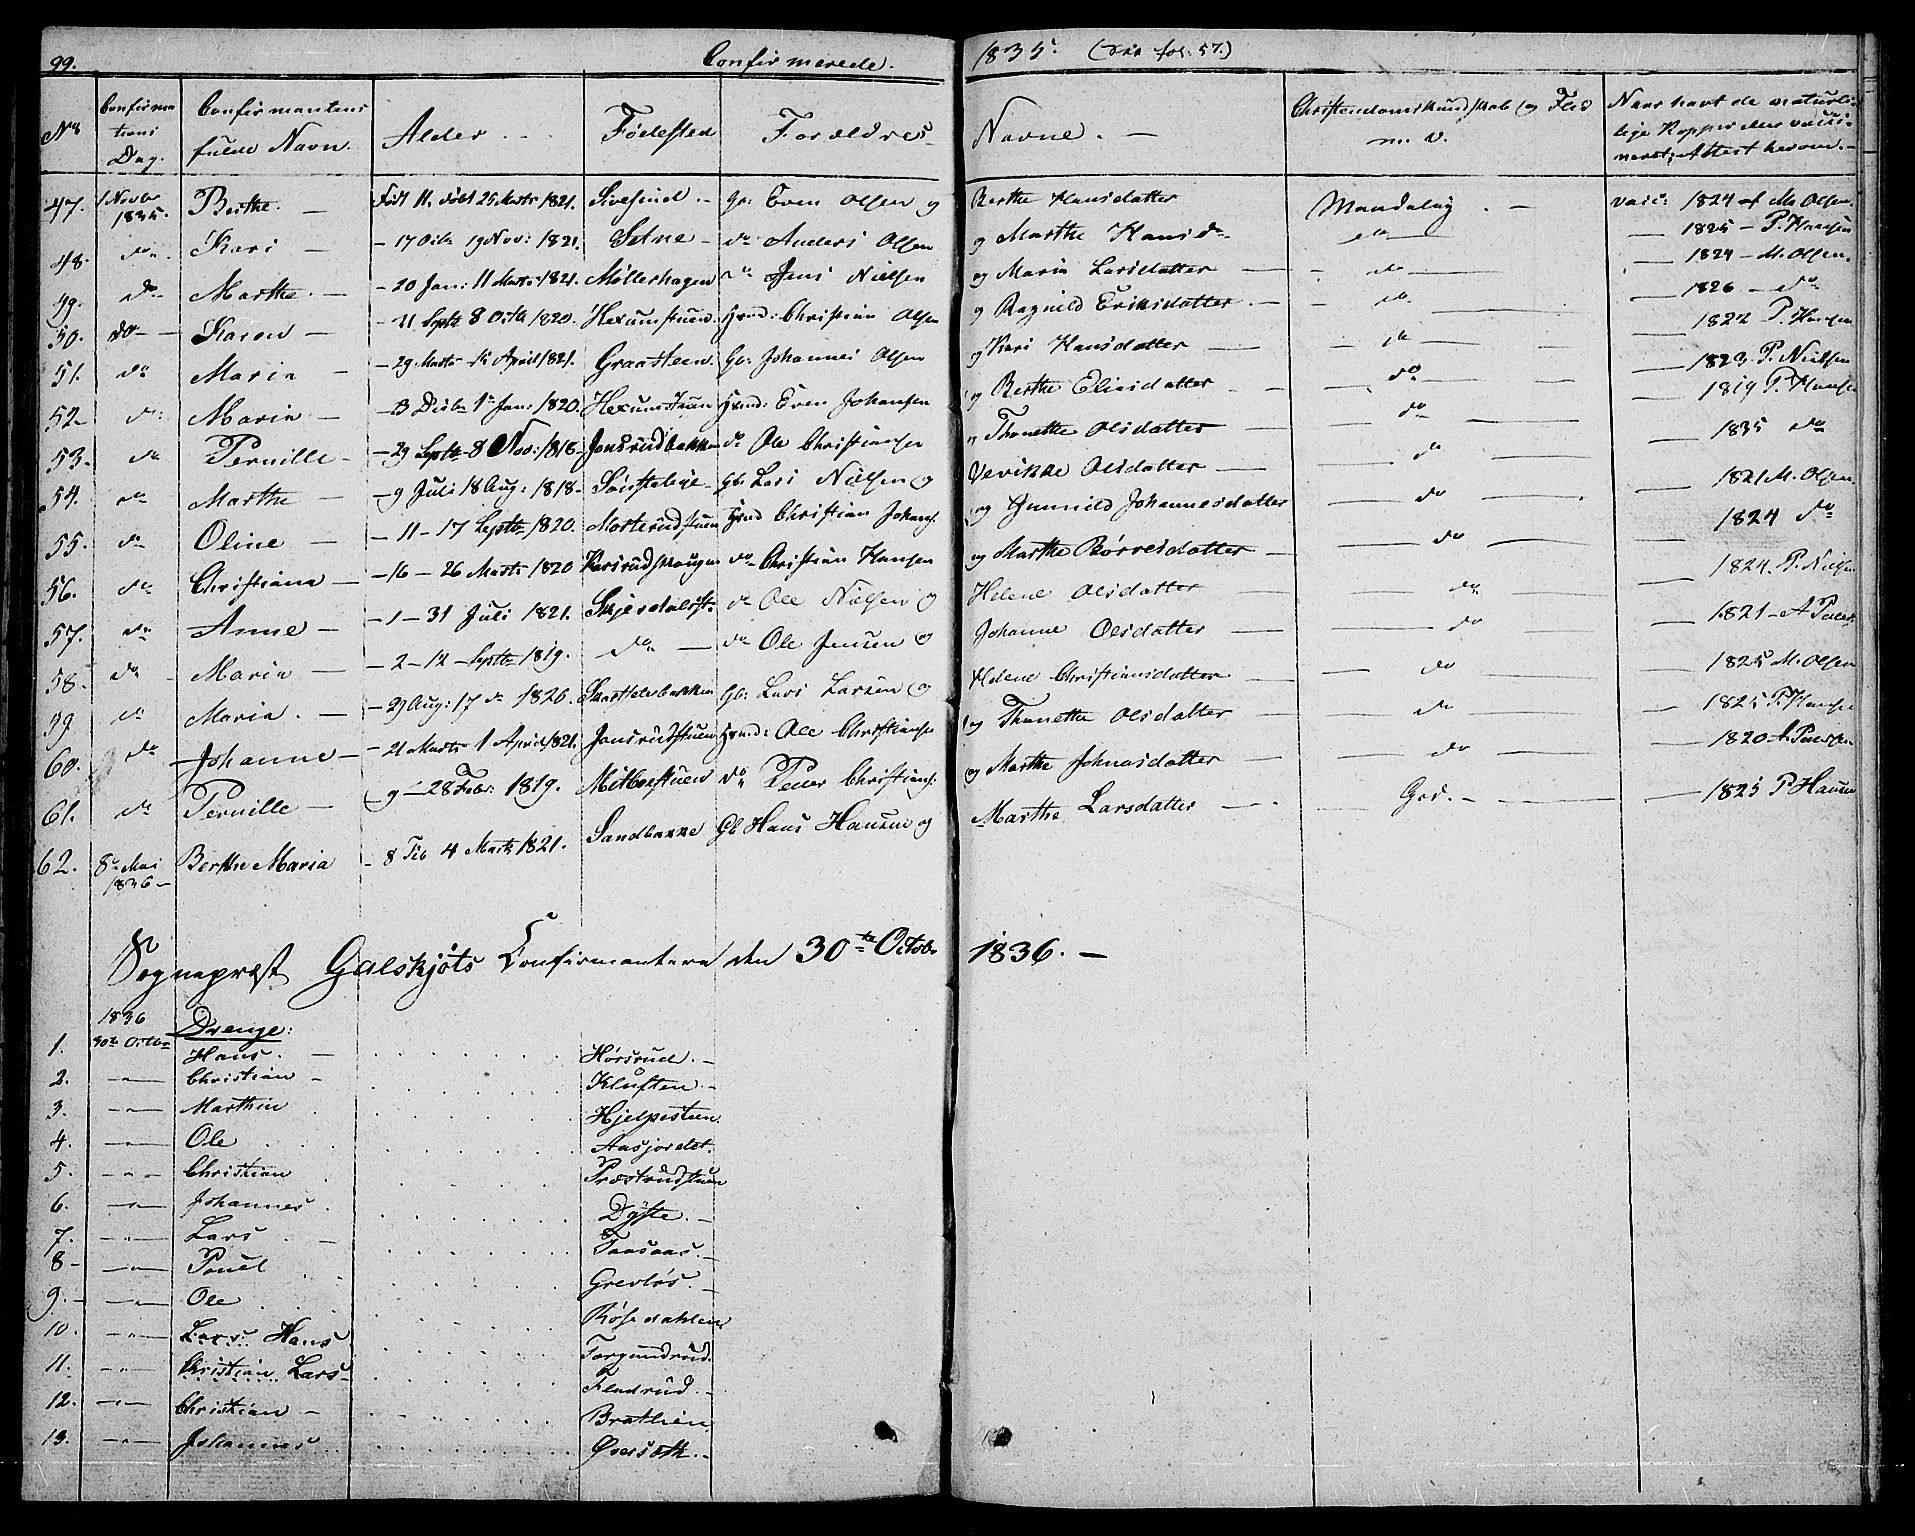 99. Confirmerede. 1835. (
No Confirma tions Dag. Confirmantens fulde Navn. Alder Födested Forældres Navne. Christendomskundskab og Flid m. v. Naar havt de naturlige Kopper eller vaccineret; Attest herom.
47. 1 Novbr 1835. Berthe. Født 11, døbt 25 Marts 1821. Sivesind. Gb: Even Olsen og Berthe Hansdatter Maadelig. vacc: 1824 af M. Olsen.
48. do Kari 17 Octb 19 Nov: 1821. Setne do Anders Olsen og Marthe Hansd. do 1825 P. Hansen
49. do Marthe. 20 Jan: 11 Marts 1821. Möllerhagen do Jens Nielsen og Maria Larsdatter do 1824 M. Olsen.
50. do Karen 11 Septb 8 Octb 1820. Hexumstuen. Hmd: Christian Olsen og Ragnild Eriksdatter. do 1826 do
51. do Maria 29 Marts April 1821. Graasteen. Gb: Johannes Olsen og Kari Hansdatter do 1822 P. Hansen
52 do Maria 13 Decbr 1 Jan: 1820. Hexumstuen Hmd: Even Johansen og Berthe Eliasdatter do 1823 P. Nielsen
53. do Pernille 29 Septb 8 Nov: 1818 Jonsrudbakken do Ole Christiansen og Thonette Olsdatter do 1819 P. Hansen
54. do Marthe 9 Juli 18 Aug: 1818 Gb: Lars Nielsen og Olsdatter do 1835 do
55. do Oline 11 - 17 Septb 1820. Mosterudstuen Hmd Christian Johans. og Gunnild Johannesdatter do 1821 M. Olsen.
56. do Christiana 16 - 26 Marts 1820 do Christian Hansen og Marthe Börresdatter do 1824 do
57. do Anne 1 - 31 Juli 1821. do Ole Nielsen og Helene Olsdatter do 1824. P. Nielsen
58. do Maria 2 - 12 Septb 1819. do do Ole Jensen og Johanne Olsdatter do 1821 - A Peders.
59. do Maria. 29 Aug: 17 do 1820. Gb: Lars Larsen og Helene Christiansdatter do 1825 M. Olsen
60. do Johanne 21 Marts 1 April 1821. Jonsrudstuen Hmd: Ole Christianse og Thonette Olsdatter do 1825 P. Hansen
61. do Pernille 9 - 28 Febr: 1819. Mölboestuen do Peder Christians. og Marthe Johnasdatter do 1820 A. Pedersen
62. 8 Mai 1836 Berthe Maria 8 Feb 4 Marts 1821. Sandbakke Gb Hans Hansen og Marthe Larsdatter God. 1825 P Hansen
Sognepræst Galskjöts Confirmantere den 30te Octob. 1836.
1836 Drenge:
1. 30te Octbr Hans. Hörsrud.
2. Christian Kluften.
3. Marthin Hjelpesteen.
4. Ole Aasjordet.
5. Christian Præstrudstuen
6. Johannes Dyste.
7. Lars Taasaas.
8 Pouel Grevlös.
9. Ole Rösedahlen
10. Lars Hans Torgundrud.
11. Christian Lars Fladrud.
12. Christian Brathien
13. Johannes Øversæth.